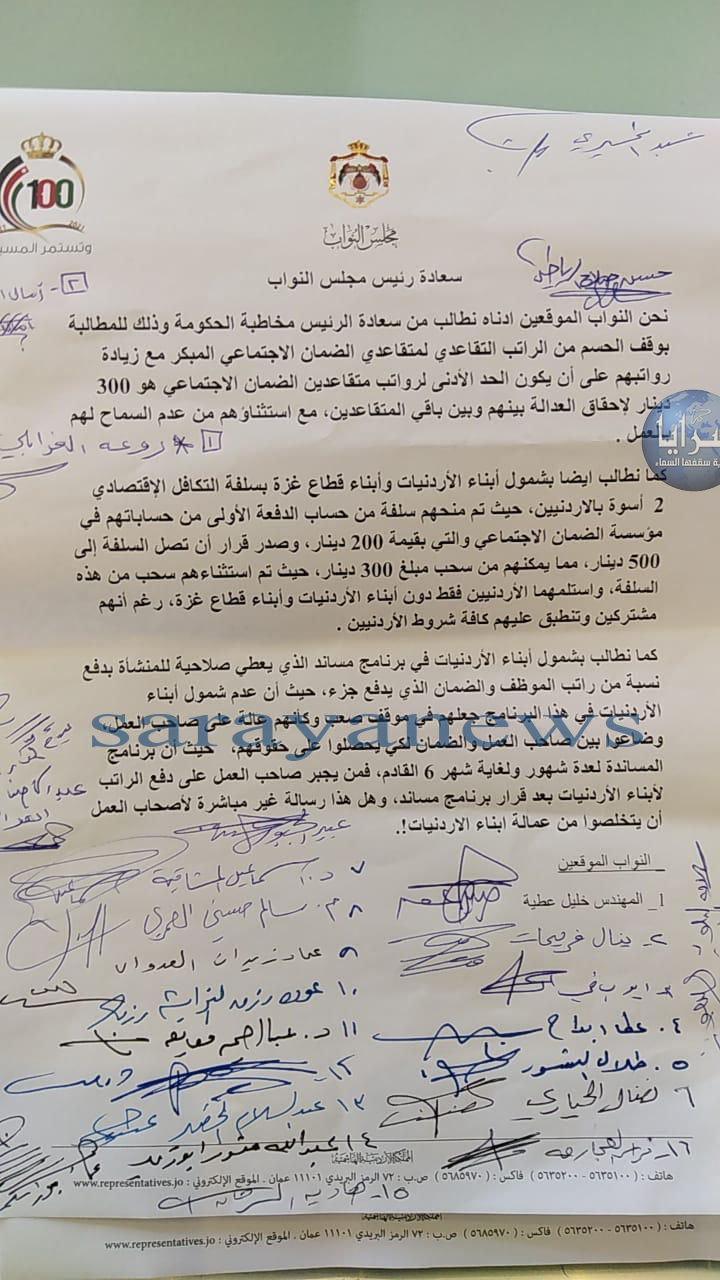 100
وتستمر المسير
مجلس النواب
سعادة رئيس مجلس النواب
نحن النواب الموقعين ادناه نطالب من سعادة الرئيس مخاطبة الحكومة وذلك للمطالبة
بوقف الحسم من الراتب التقاعدي لمتقاعدي الضمان الاجتماعي المبكر مع زيادة
رواتبهم على أن يكون الحد الأدنى لرواتب متقاعدين الضمان الاجتماعي هو 300
دينار لإحقاق العدالة بينهم وبين باقي المتقاعدين، مع استثناؤهم من عدم السماح لهم
بالعمل .
كما نطالب ايضا بشمول أبناء الأردنيات وأبناء قطاع غزة بسلفة التكافل الإقتصادي
2 أسوة بالاردنيين، حيث تم منحهم سلفة من حساب الدفعة الأولى من حساباتهم في
مؤسسة الضمان الاجتماعي والتي بقيمة 200 دينار، وصدر قرار أن تصل السلفة إلى
500 دينار، مما يمكنهم من سحب مبلغ 300 دينار، حيث تم استثناءهم سحب من هذه
السلفة، واستلمهما الأردنيين فقط دون أبناء الأردنيات وأبناء قطاع غزة، رغم أنهم
مشتركين وتنطبق عليهم كافة شروط الأردنيين .
كما نطالب بشمول أبناء الأردنيات في برنامج مساند الذي يعطي صلاحية للمنشأة بدفع
نسبة من راتب الموظف والضمان الذي يدفع جزء، حيث أن عدم شمول أبناء
الأردنيات في هذا البرنامج جعلهم في موقف صعب وكأنهم عالة على صاحب العمل،
وضاعوا بين صاحب العمل والضمان لكي يحصلوا على حقوقهم، حيث أن برنامج
المساندة لعدة شهور ولغاية شهر 6 القادم، فمن يجبر صاحب العمل على دفع الراتب
لأبناء الأردنيات بعد قرار برنامج مساند، وهل هذا رسالة غير مباشرة لأصحاب العمل
أن يتخلصوا من عمالة ابناء الاردنيات!.
sarayanews
سرايا
_ النواب الموقعين
1_ المهندس خليل عطية
٢- ينال فريحات
٤. عطا ابداح
٥. طلال النسور
٦ نضال الحياري
٧ د. اسماعيل المشاقبة
٨ م. سالم حسني العمري
٩ عماد
العدوان
١٠.
١١ د.
١٢-
١٣ عبدالسلام الخضير
١٤ عبدالله
ابوزيد
١٥- هادية السرحان
١٦- فراس العجارمة
المملكة الأردنية الهاشمية
هاتف : ( ٥٦٣٥١٠٠ - ٥٦٣٥٢٠٠ ) فاكس : ( ٥٦٨٥٩٧٠ ) ص.ب : ٧٢ الرمز البريدي ١١١٠١ عمان . الموقع الإلكتروني : www.representatives.jo
هاتف : ( ٥٦٣٥١٠٠ - ٥٦٣٥٢٠٠ ) فاكس : ( ٥٦٨٥٩٧٠ ) ص.ب : ٧٢ الرمز البريدي ١١١٠١ عمان . الموقع الإلكتروني : www.representatives.jo